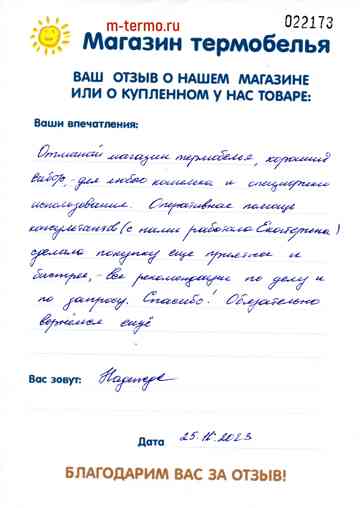 m-termo.ru
022173
Магазин термобелья
ВАШ ОТЗЫВ О НАШЕМ МАГАЗИНЕ
ИЛИ О КУПЛЕННОМ У НАС ТОВАРЕ:
Ваши впечатления:
Отличный магазин термобелья, хороший
выбор, - для любого кошелька и
использования. Оперативная помощь
консультантов (с нами работала Екатерина)
сделала покупку еще приятнее и
быстрее, - все рекомендации по делу и
по запросу. Спасибо! Обязательно
вернёмся ещё
Вас зовут: Надежда
Дата 25.11.2023
БЛАГОДАРИМ ВАС ЗА ОТЗЫВ!